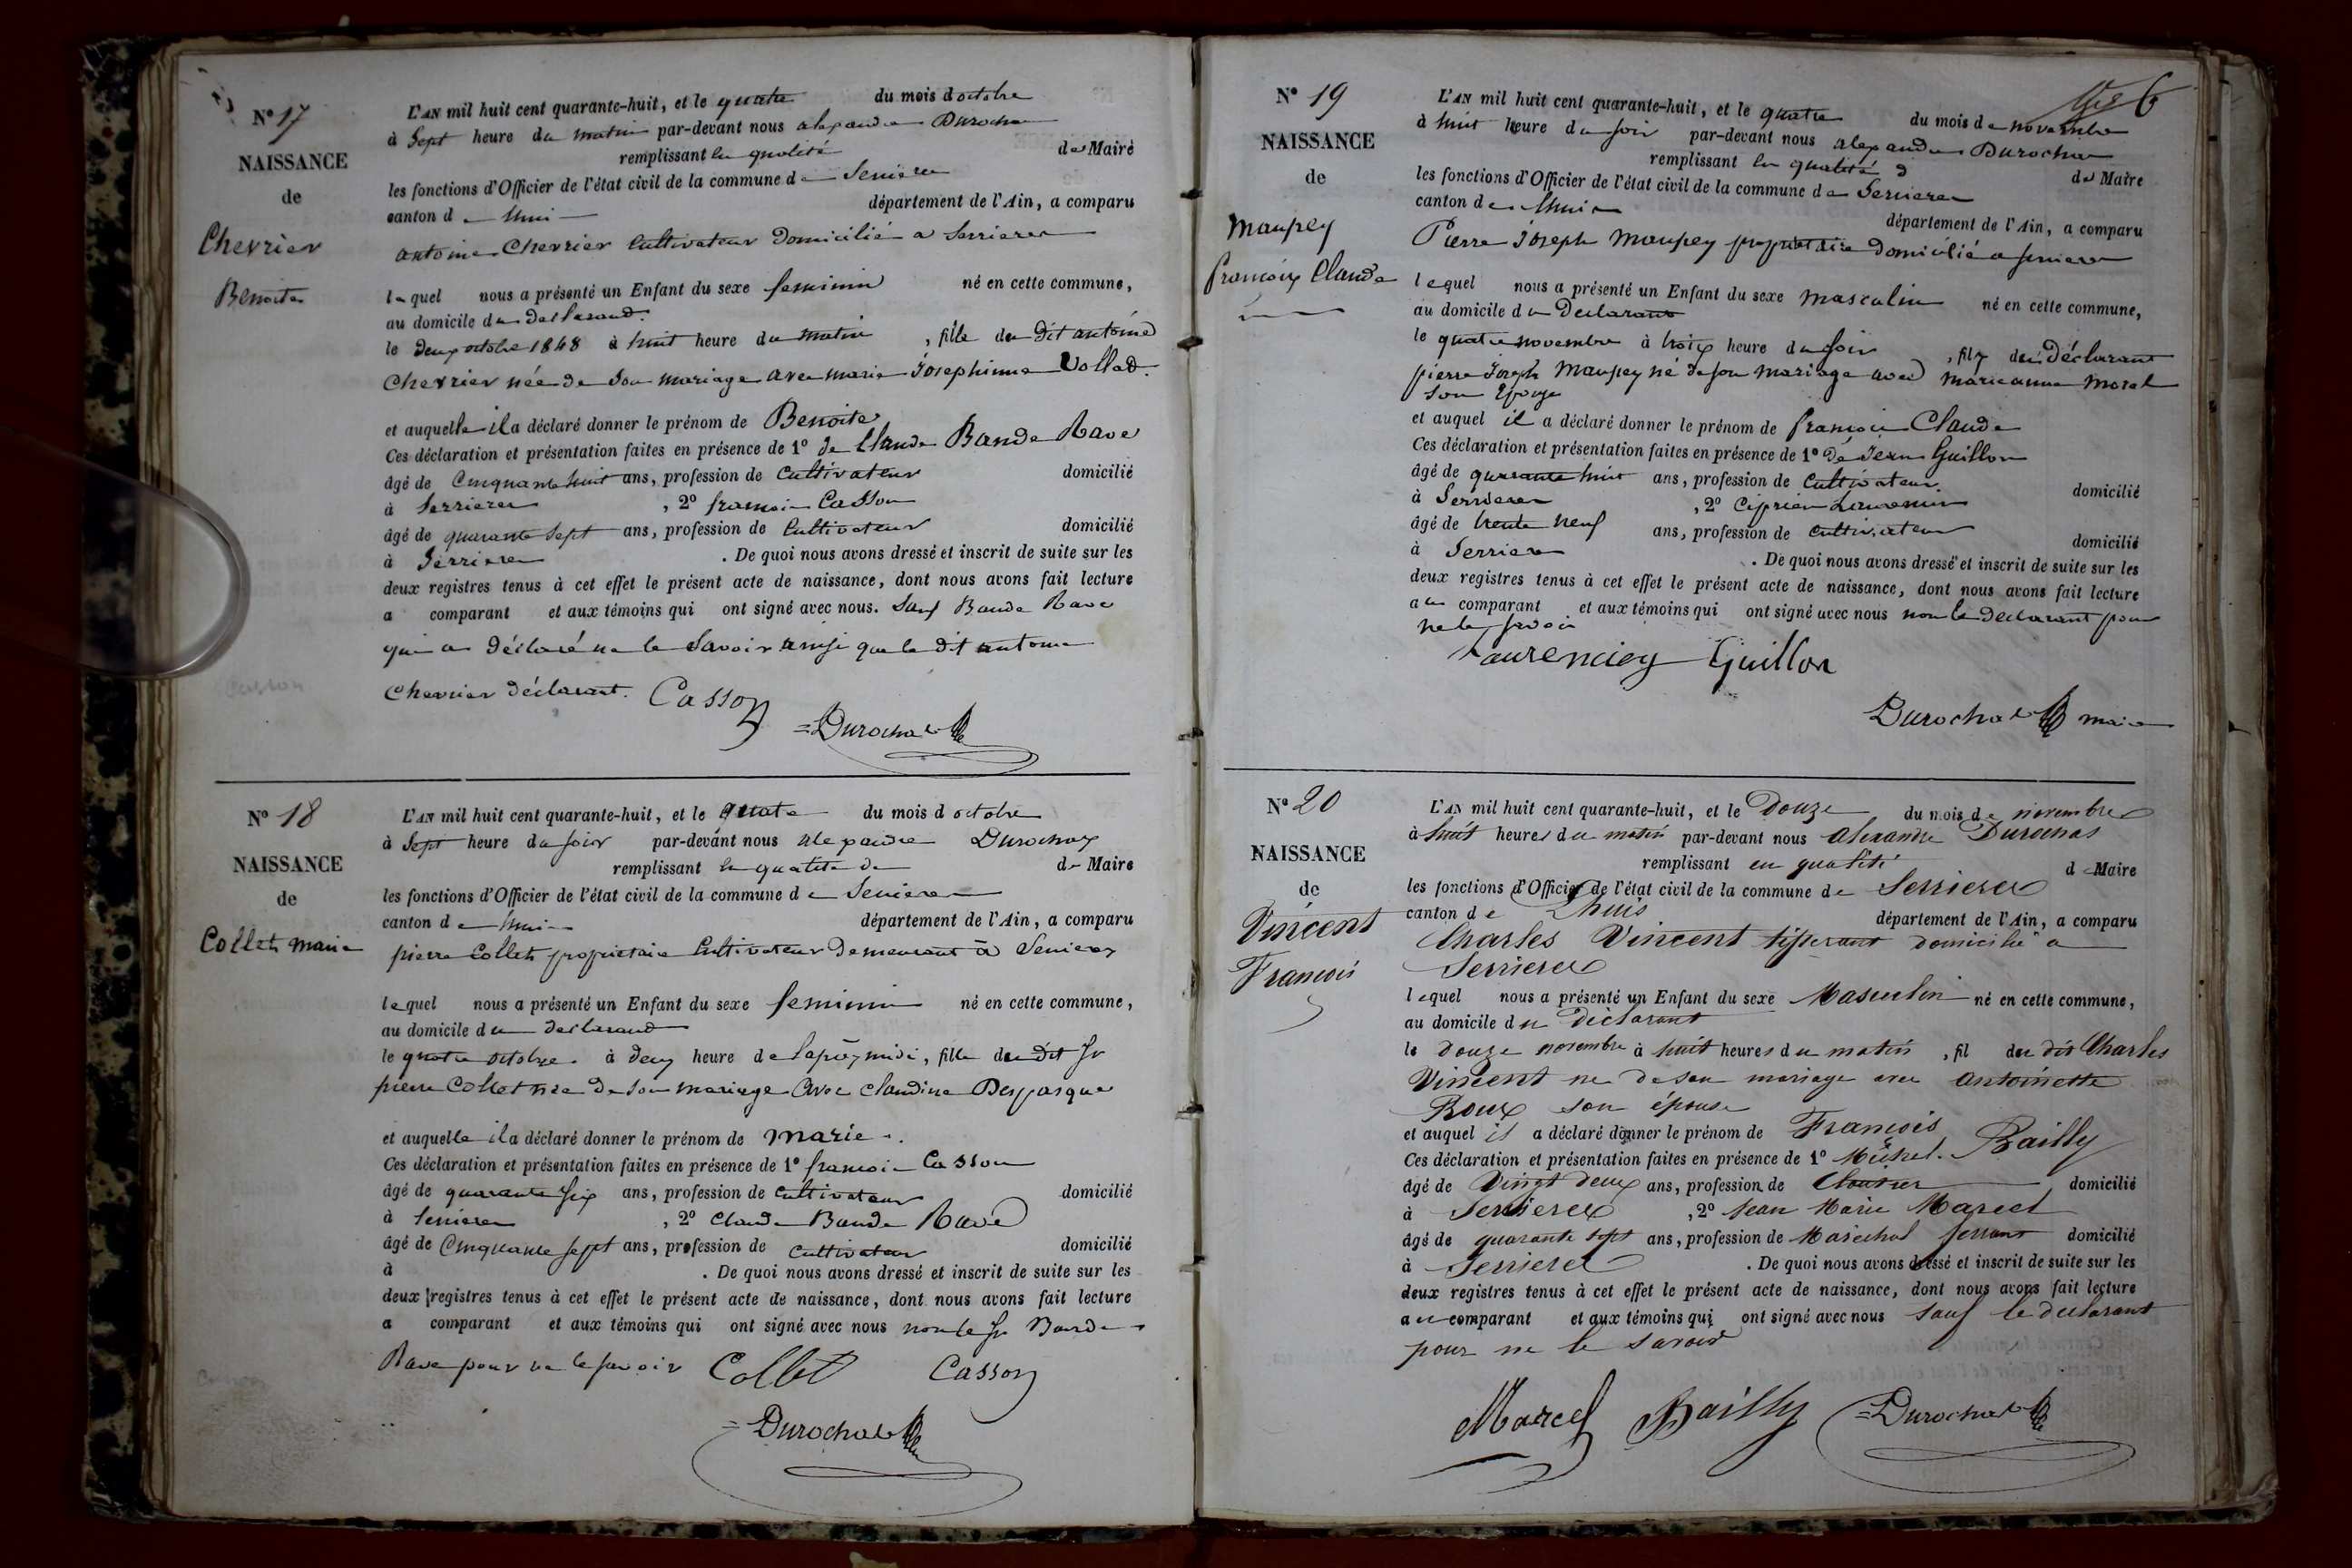 N° 17
NAISSANCE
de
Chevrier
Benoite
L'AN mil huit cent quarante-huit, et le quatre du mois d octobre
à Sept heure du matin par-devant nous alexandre Durochat
remplissant en qualité de Maire
les fonctions d'Officier de l'état civil de la commune de Serriere
canton de Lhuis département de l'Ain, a comparu
antoine Chevrier Cultivateur Domicilié a Serrieres
lequel nous a présenté un Enfant du sexe feminin né en cette commune,
au domicile du declarand
le deux octobre 1848 à huit heure du matin, fille du Dit antoine
Chevrier née de son mariage avec marie Josephinne Vollod
et auquelle il a déclaré donner le prénom de Benoite
Ces déclaration et présentation faites en présence de 1° de Claude Bande Rave
âgé de Cinquante huit ans, profession de Cultivateur domicilié
à Serrieres, 2° francois Casson
âgé de quarante sept ans, profession de Cultivateur domicilié
à Serrieres. De quoi nous avons dressé et inscrit de suite sur les
deux registres tenus à cet effet le présent acte de naissance, dont nous avons fait lecture
a comparant et aux témoins qui ont signé avec nous. Sauf Bande Rave
qui a déclaré ne le Savoir ainsi que le dit antoine
Chevrier déclarant. Casson
Durochat
N° 18
NAISSANCE
de
Collet marie
L'AN mil huit cent quarante-huit, et le quatre du mois d octobre
à Sept heure du soir par-devant nous alexandre Durochat
remplissant en qualité de de Maire
les fonctions d'Officier de l'état civil de la commune de Serriere
canton de Lhuis département de l'Ain, a comparu
pierre Collet proprietaire Cultivateur Demeurant à Serrieres
lequel nous a présenté un Enfant du sexe feminin né en cette commune,
au domicile du declarand
le quatre octobre. à deux heure de lapres midi, fille du Dit Sr
pierre Collet née de son mariage avec Claudine Desparque
et auquelle il a déclaré donner le prénom de marie.
Ces déclaration et présentation faites en présence de 1° francois Casson
âgé de quarante six ans, profession de Cultivateur domicilié
à Serrieres, 2° Claude Bande Rave
âgé de Cinquante sept ans, profession de Cultivateur domicilié
à . De quoi nous avons dressé et inscrit de suite sur les
deux registres tenus à cet effet le présent acte de naissance, dont nous avons fait lecture
a comparant et aux témoins qui ont signé avec nous non le Sr Bande
Rave pour ne le savoir Collet Casson
Durochat
6
N° 19
NAISSANCE
de
Maupey
francoix Claude
L'AN mil huit cent quarante-huit, et le quatre du mois de novembre
à huit heure du soir par-devant nous alexandre Durochat
remplissant en qualité d de Maire
les fonctions d'Officier de l'état civil de la commune de Serrieres
canton de Lhuis département de l'Ain, a comparu
Pierre Joseph Maupey propriétaire domicilié a Serrieres
lequel nous a présenté un Enfant du sexe masculin né en cette commune,
au domicile du Declarant
le quatre novembre à troix heure du soir, fils du déclarant
pierre Joseph Maupey né de son mariage avec marie anne Morel
son Epouze
et auquel il a déclaré donner le prénom de francois Claude
Ces déclaration et présentation faites en présence de 1° De Jean Guillon
âgé de quarante huit ans, profession de Cultivateur domicilié
à Serrieres, 2° Ciprien Laurencin
âgé de trente neuf ans, profession de Cultivateur domicilié
à Serrieres. De quoi nous avons dressé et inscrit de suite sur les
deux registres tenus à cet effet le présent acte de naissance, dont nous avons fait lecture
au comparant et aux témoins qui ont signé avec nous non le declarant pour
ne le savoir
Laurencin Guillon
Durochat maire
N° 20
NAISSANCE
de
Vincent
Francois
L'AN mil huit cent quarante-huit, et le Douze du mois de novembre
à huit heures du matin par-devant nous Alexandre Durochas
remplissant en qualité de Maire
les fonctions d'Officier de l'état civil de la commune de Serrieres
canton de Lhuis département de l'Ain, a comparu
Charles Vincent tisserant domicilié a
Serrieres
lequel nous a présenté un Enfant du sexe Masculin né en cette commune,
au domicile du Déclarant
le Douze novembre à huit heures du matin, fil du dit Charles
Vincent ne de son mariage avec Antoinette
Roux son épouse
et auquel il a déclaré donner le prénom de Francois
Ces déclaration et présentation faites en présence de 1° Michel Bailly
âgé de Vingt deux ans, profession de Cloutier domicilié
à Serrieres, 2° Jean Marie Marcel
âgé de quarante sept ans, profession de Maréchal ferrant domicilié
à Serrieres. De quoi nous avons dressé et inscrit de suite sur les
deux registres tenus à cet effet le présent acte de naissance, dont nous avons fait lecture
au comparant et aux témoins qui ont signé avec nous sauf le declarant
pour ne le savoir
Marcel Bailly Durochat